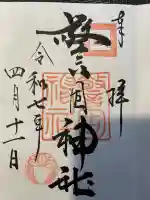 奉拝
警固神社
令和七年
四月十二日